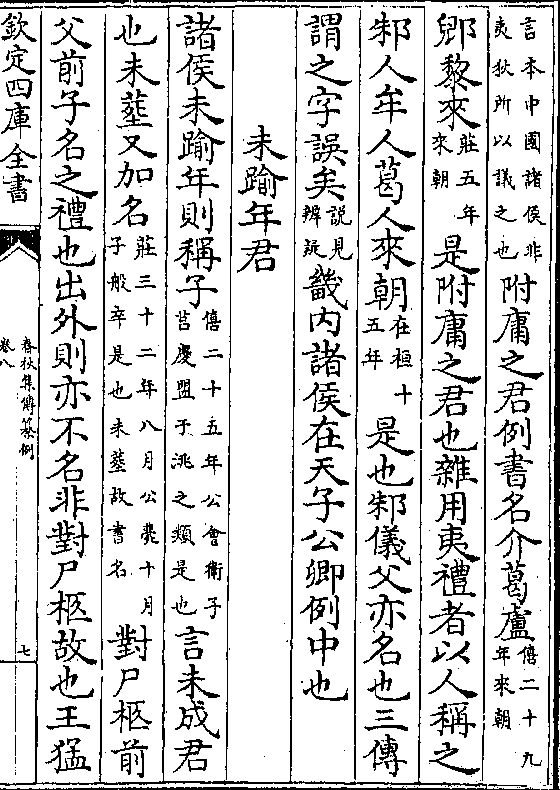 言本中國諸侯非夷狄所以議之也附庸之君例書名介葛盧僖二十九年來朝
鄉黎來莊五年來朝是附庸之君也雜用夷禮者以人稱之
邾人牟人葛人來朝在桓十五年是也邾儀父亦名也三傳
謂之字誤矣說見辨疑畿内諸侯在天子公卿例中也
未踰年君
諸侯未踰年則稱子僖二十五年公會衛子莒慶盟于洮之類是也言未成君
也未葬又加名莊三十二年八月公薨十月子般卒是也未葬故書名對尸柩前
父前子名之禮也出外則亦不名非對尸柩故也王猛
欽定四庫全書
春秋集傳纂例
卷八
七